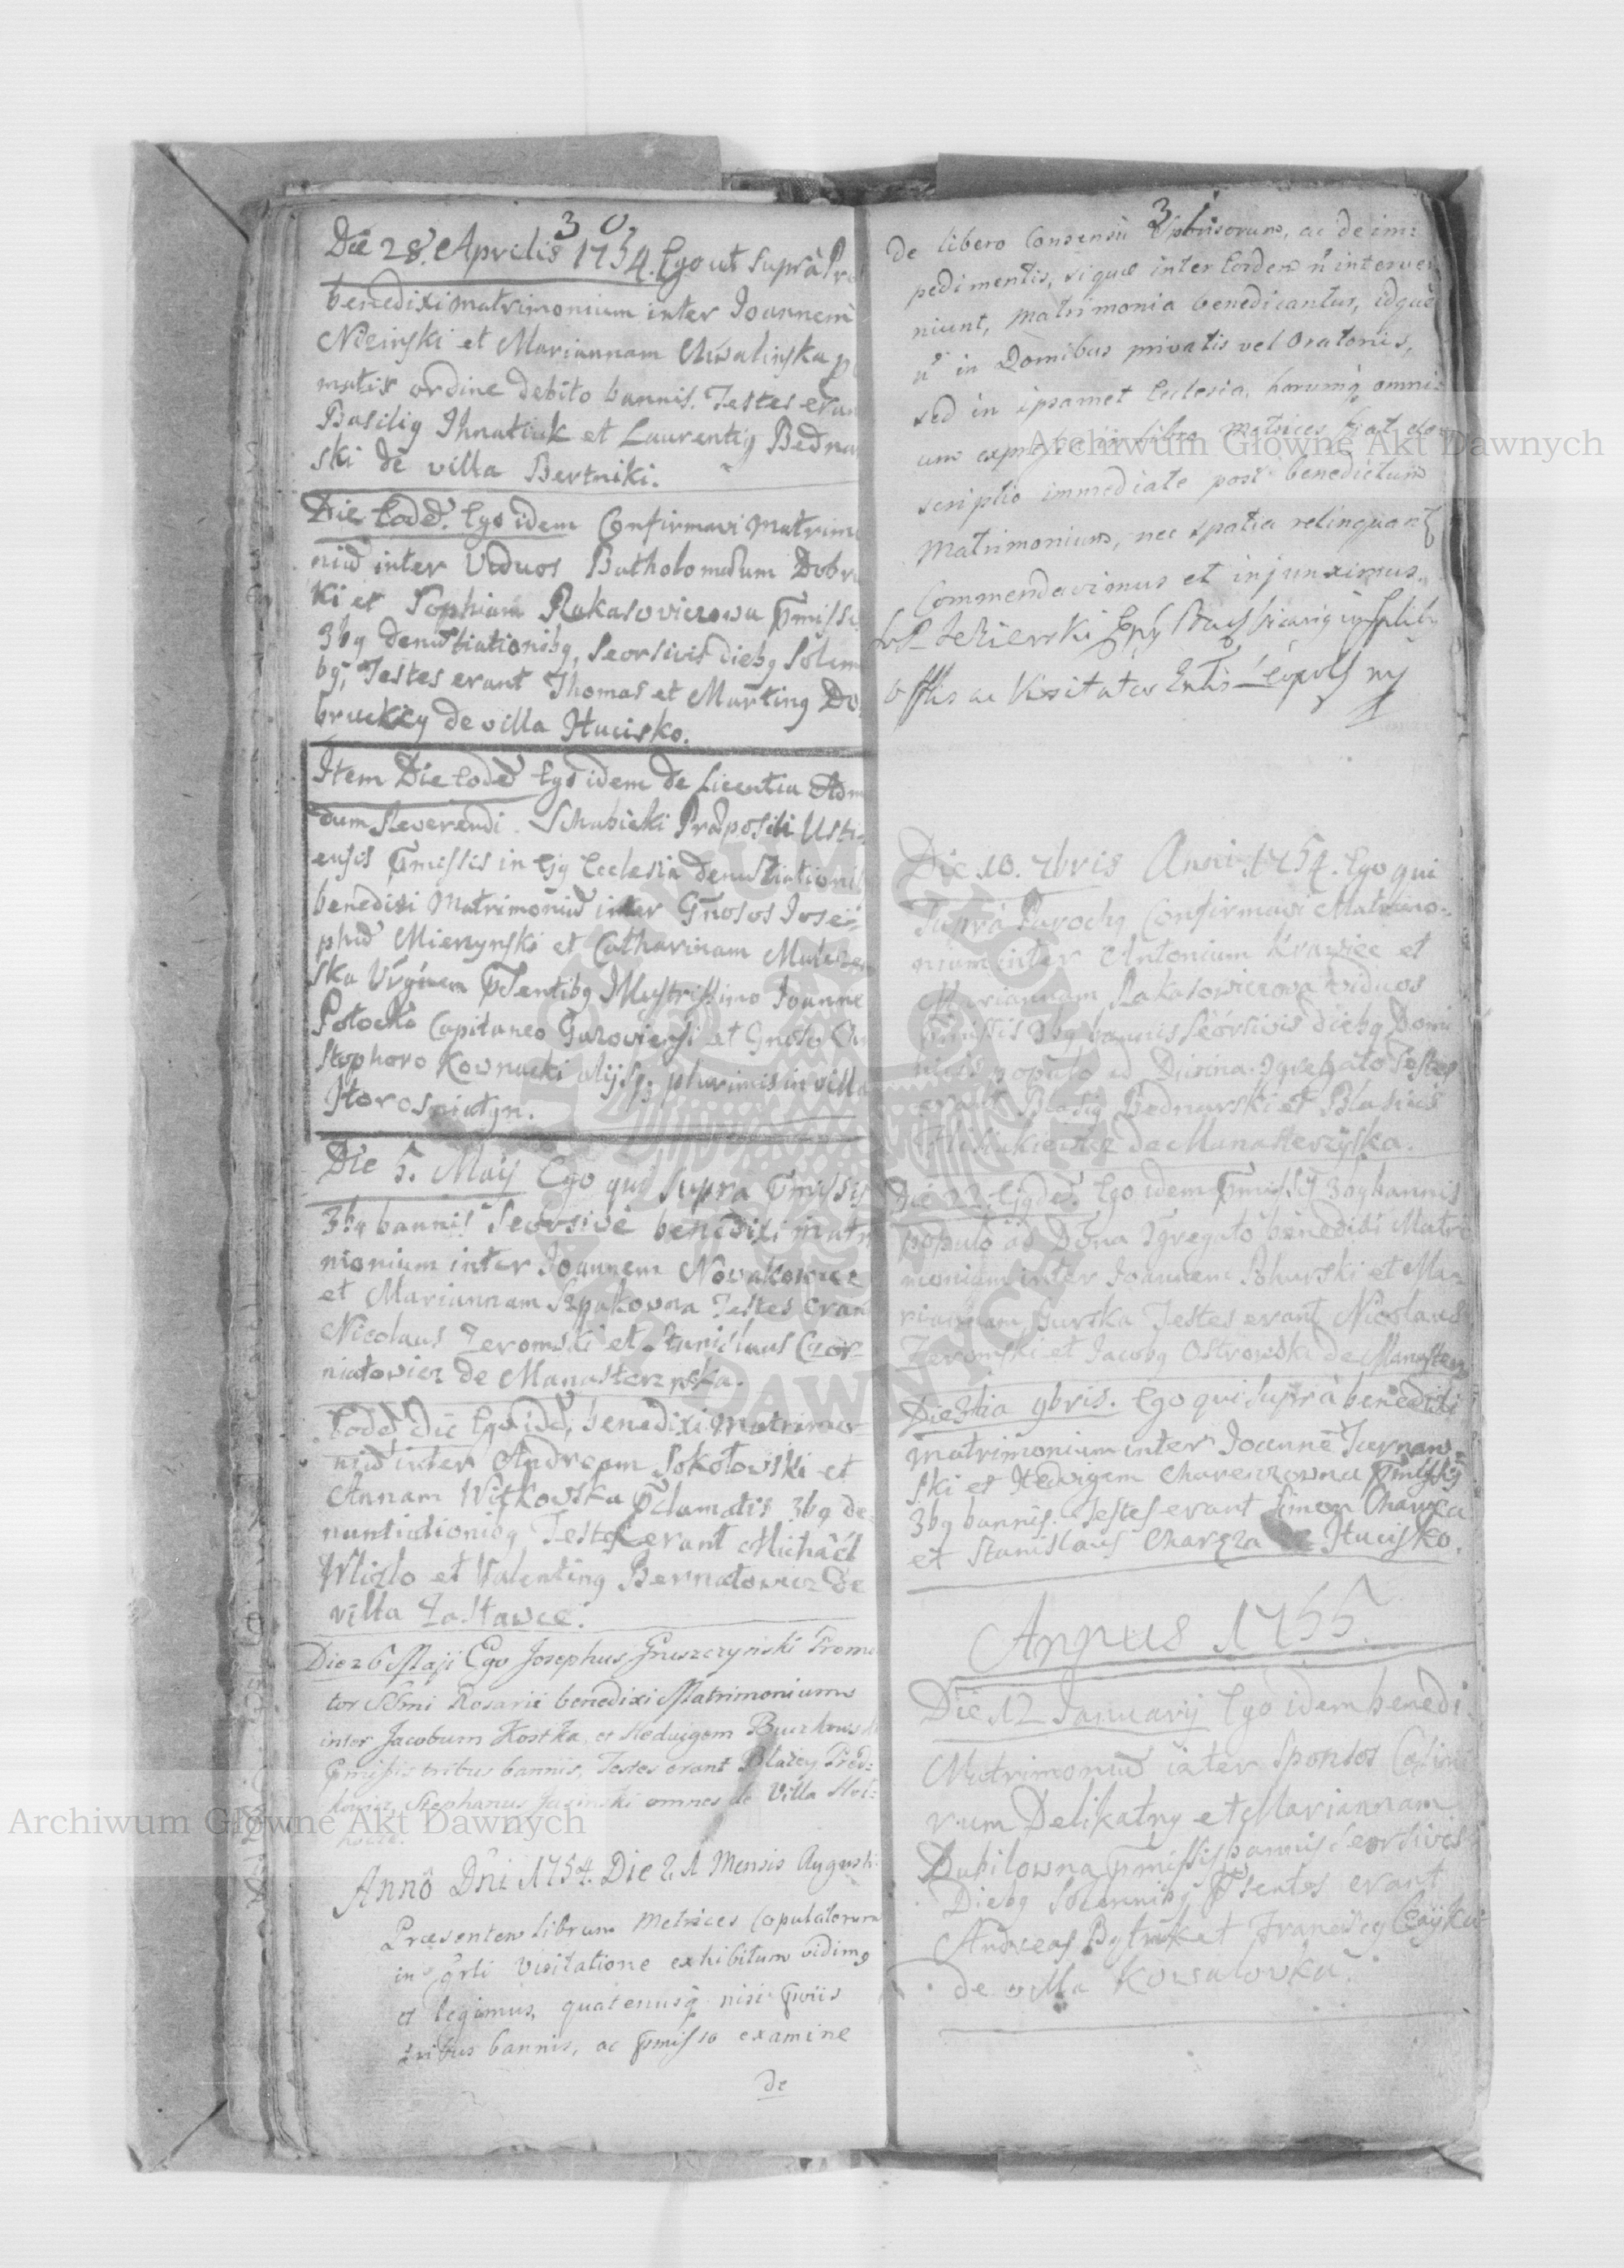 30
Die 28. Aprilis 1754. Ego ut Suprà Pre
benediximatrimonium inter Joannem
Niziński et Mariannam Chwalinska p
matis ordine debito bannis. Testes eran
Basilig Ihnatiuk et Laurentig Bedna
ski de villa Bertniki.
Die Eodē. Ego idem Confirmavi Matrimo
niū inter Viduos Batholomæum Dobru
ki et Sophiam Rakasoviczowa p̄missi
3bg denūtiationibg, Seorsivis diebg Solem
bg, Testes erant Thomas et Marting Do
bruckiy de villa Hucisko.
Item Die Eodē Ego idem de Licentia Adm
dum Reverendi Schabicki Præpositi Usti-
ensis p̄missis in Ejg Ecclesia denūtiationi
benedixi Matrimoniū inter Gnosos Jose-
phū Mierzynski et Catharinam Mulsze
ska Virginem p̄sentibg Illustrissimo Joanne
Potocki Capitaneo Guzoviensi et Gnoso Chr
stophoro Kownacki alijsq; plurimis in villa
Horosniatyn.
Die 5. Maij Ego qui Supra p̄missis
3bg bannis Seorsive benedixi matri
monium inter Joannem Novakowicz
et Mariannam Szpakowna Testes eran
Nicolaus Zeromski et Stanislaus Czor-
niatowicz de Manasterzyska.
Eodē die Ego idē, benedixi Matrimo-
niū inter Andream Sokołowski et
Annam Witkowska p̄clamatis 3bg de-
nuntiationibg Testes erant Michaël
Wlizlo et Valenting Bernatowicz de
villa Zastawce.
Die 26 Maji Ego Josephus Gruszczyński Promo
tor SSmi Rosarii benedixi Matrimonium
inter Jacobum Kostka, et Hedvigem Buczkows
p̄missis tribus bannis, Testes erant Błażey Fred=
kowicz, Stephanus Jasinski omnes de Villa Hol=
Annô Dn̄i 1754. Die 21 Mensis Augusti
Præsentem librum Metrices Copulatorum
in Gr̄li Visitatione exhibitum vidimg
et legimus, quatenusq̄ nisi p̄viis
tribus bannis, ac p̄misso examine
de
31
De libero Consensû Sponsorum, ac de im=
pedimentis, si quæ inter Eosdem n̄ interve
niunt, Matrimonia benedicantur, idque
n̄ in Domibus privatis vel Oratoriis,
sed in ipsamet Ecclesia, harumq̄ omni=
um expressa in libro Metrices fiat de=
scriptio immediate post benedictum
Matrimonium, nec spatia relinquant
Commendavimus et injunximus.
Die 10. 7bris Anni 1754. Ego qui
Suprà Parochg Confirmavi Matrimo-
nium inter Antonium Krawiec et
Mariannam Rakasowiczowa viduos
p̄missis 3bg bannis Seorsivis diebg Domi
nicis populo ad Divina 9gregato Testes
erant Blasig Bednarski et Blasius
de Manasterzyska.
Die 22. Ejgdē. Ego idem p̄missis 3bg bannis
populo ad Dīna 9gregato benedixi Matri
monium inter Joannem Pohurski et Ma-
riannam Gurska Testes erant Nicolaus
Zeromski et Jacobg Ostrowski de Manasterz
Die 3tia 9bris. Ego qui Suprà benedixi
matrimonium inter Joannē Tarnaw-
ski et Hedvigem Charenzowna p̄missis
3bg bannis. Testes erant Simon Charęza
et Stanislaus Charęza de Hucisko.
Annus 1755
Die 12 Januarij Ego idem benedi
Matrimoniū inter Sponsos Casimi
rum Delikatny et Mariannam
Dubilowna p̄missis bannis Seorsivis
Diebg Solennibg p̄sentes erant
Andreas Bytnik et Franciscg Czayka
de villa Kowalovka.
Archiwum Główne Akt Dawnych
Archiwum Główne Akt Dawnych